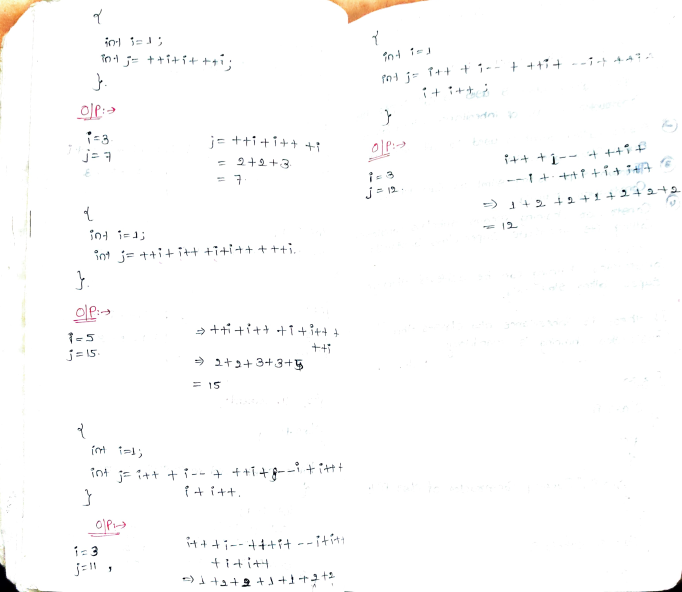 {
int i=1;
int j= ++i+i+ ++i;
}.
O/P:→
i=3
j=7
j= ++i+i++ +i
= 2+2+3
= 7.
{
int i=1;
int j= ++i+ i++ +i+i++ + ++i.
}.
O/P:→
i=5
j=15.
⇒ ++i +i++ +i + i++ +
++i
⇒ 2+2+3+3+5
= 15
{
int i=1;
int j= i++ + i-- + ++i + --i + i++
i + i++.
}
O/P→
i=3
j=11,
i++ +i-- + ++i+ --i+i++
+i+i++
⇒ 1+2+2+1+1+2+2
{
int i=1
int j= i++ + i-- + ++i+ --i+ ++i+
i+ i++;
}
O/P:→
i=3
j=12.
i++ + i-- + ++i +
--i + ++i + i + i++
⇒ 1+2+2+1+2+2+2
= 12